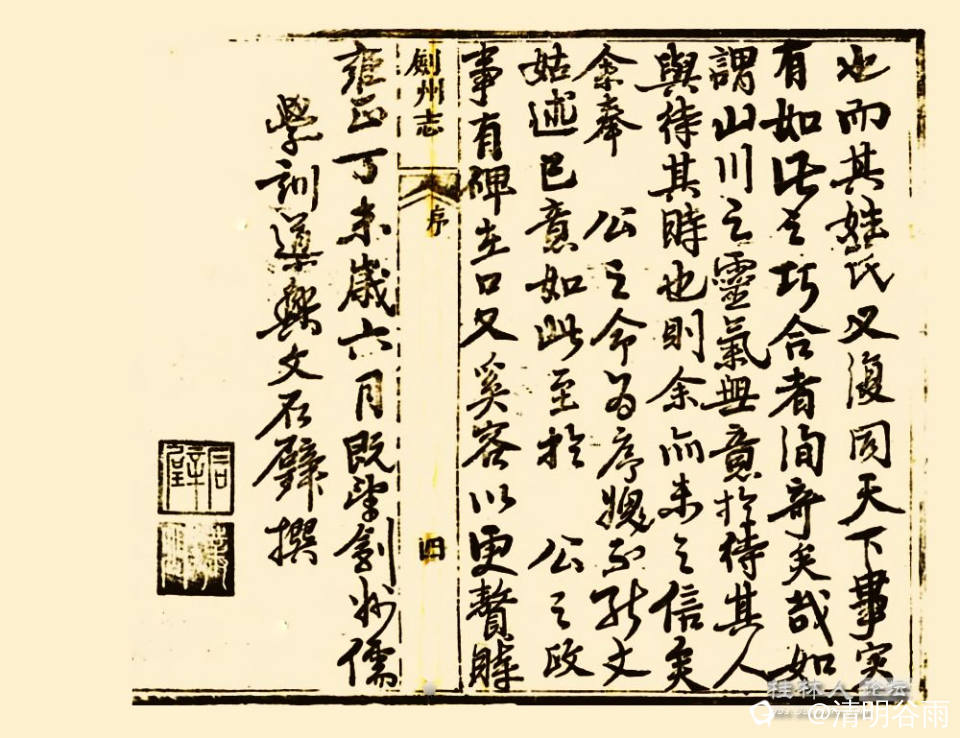 也而其姓氏又復同天下事寔
有如此之巧合者洵奇矣哉如
謂山川之靈氣無意於待其人
與待其時也則余亦未之信矣
余奉　公之命為序媿不能文
姑述己意如此至於　公之政
事有碑在口又奚容以更贅時
劍州志
序
四
雍正丁未歲六月既望劍州儒
學訓導樂文石璧撰
石璧
桂林人论坛
@清明谷雨